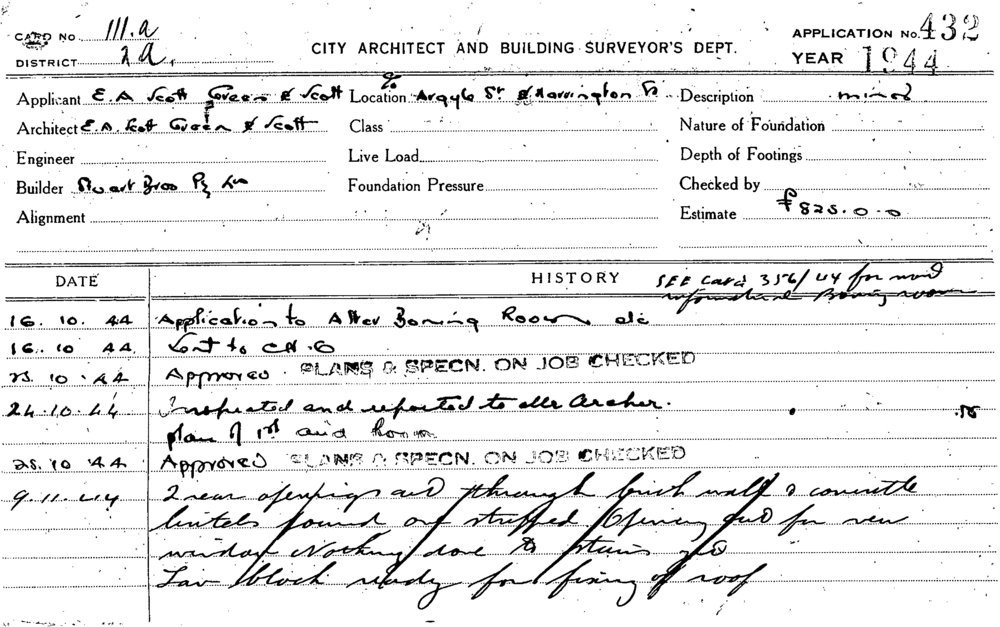 CARD NO. 111.a
DISTRICT 2a.
CITY ARCHITECT AND BUILDING SURVEYOR'S DEPT.
APPLICATION No. 432
YEAR 1944
Applicant E.A Scott Green & Scott
Architect E.A. Scott Green & Scott
Engineer
Builder Stuart Bros Pty Ltd
Alignment
c/o
Location Argyle St & Harrington St
Class
Live Load
Foundation Pressure
Description minor
Nature of Foundation
Depth of Footings
Checked by
Estimate £825.0.0
DATE HISTORY
SEE Card 356/44 for
16.10.44 Application to Alter Room etc
16.10.44 Sent to
23.10.44 Approved PLANS & SPECN. ON JOB CHECKED
24.10.44 Inspected and reported to Mr Archer.
plan of 1st aid Room
25.10.44 Approved PLANS & SPECN. ON JOB CHECKED
9.11.44 2 new openings cut through brick wall & concrete
lintels poured and stripped Opening cut for new
window Nothing done to stairs yet
Lav block ready for fixing of roof